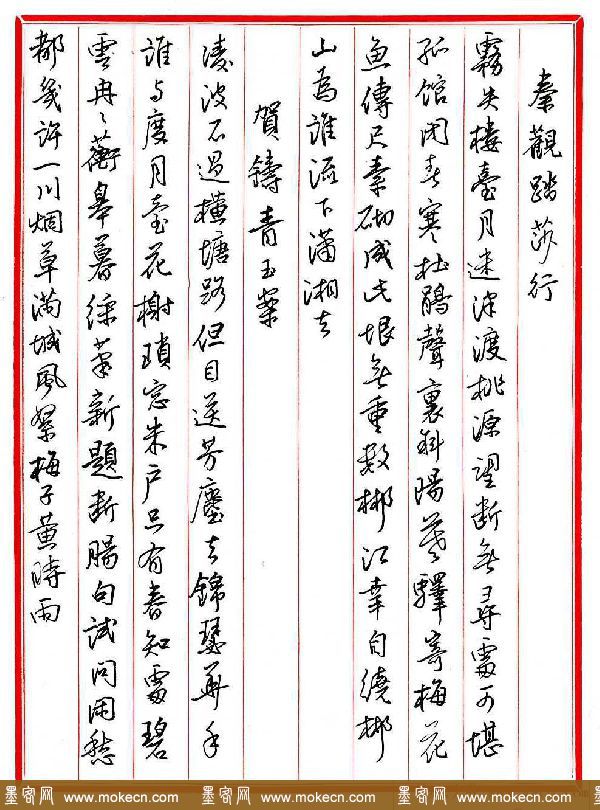 秦觀踏莎行
霧失樓臺月迷津渡桃源望斷無尋處可堪
孤館閉春寒杜鵑聲裏斜陽暮驛寄梅花
魚傳尺素砌成此恨無重數郴江幸自繞郴
山為誰流下瀟湘去
賀鑄青玉案
淩波不過橫塘路但目送芳塵去錦瑟華年
誰与度月臺花榭瑣窓朱户只有春知處碧
雲冉々蘅皋暮綵筆新題斷腸句試問閑愁
都幾許一川烟草滿城風絮梅子黃時雨
墨客网 www.mokecn.com 墨客网 www.mokecn.com 墨客网 www.mokecn.com